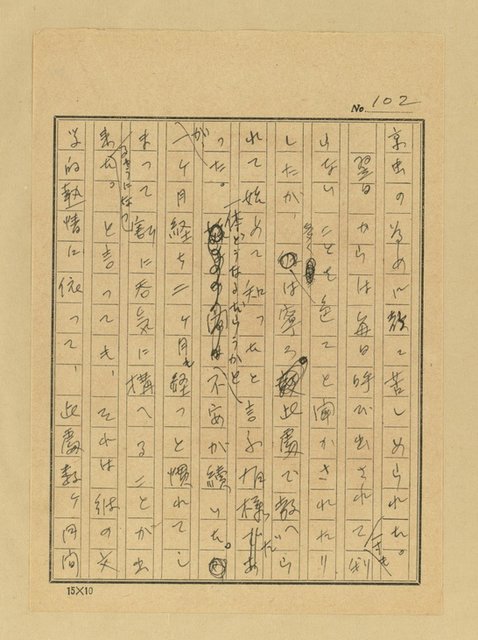 No. 102
京虫の為めに散々苦しめられた。
翌日からは毎日呼び出されて、
しない ことも色々と聞かされたり
したが、 は寧ろ 此處で教へら
れて始めて知ったと言ふ有様だ
った。一体どうなるだらうかと不安が續いた。
が、一ヶ月経ち二ヶ月も経つと慣れてし
まって割に呑気に構へることが出
来た。と言っても、それは彼の文
学的熱情に依って、此處数ヶ月間
15×10